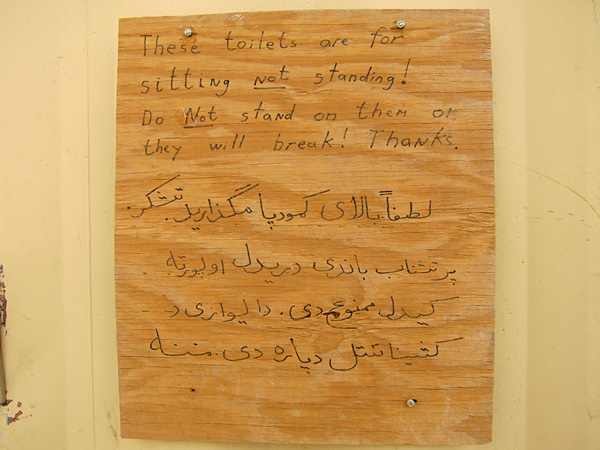 These toilets are for
sitting not standing!
Do Not stand on them or
they will break! Thanks.
لطفاً بالای کمود پا مگذارید. تشکر.
پر تشناب باندی دریدل او پورته
کیدل ممنوع دی. دا یوازی د
کښیناستل دپاره دی. مننه